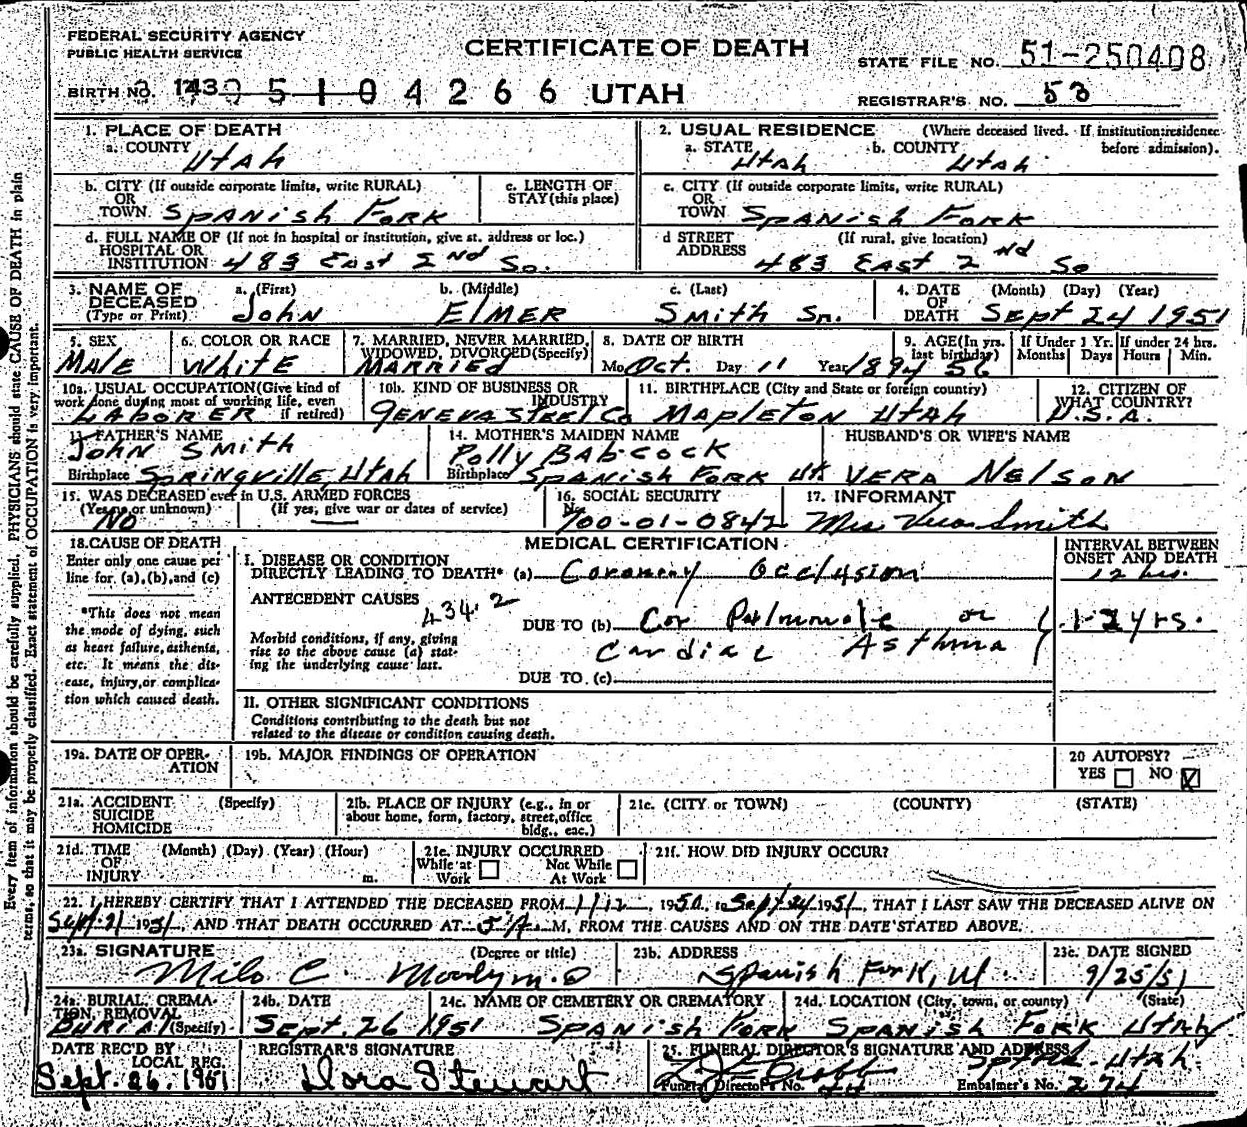 FEDERAL SECURITY AGENCY
PUBLIC HEALTH SERVICE
CERTIFICATE OF DEATH
STATE FILE NO. 51-250408
BIRTH NO. 143 0 5 1 0 4 2 6 6 UTAH
REGISTRAR'S NO. 53
1. PLACE OF DEATH
a. COUNTY Utah
2. USUAL RESIDENCE (Where deceased lived. If institution: residence before admission).
a. STATE Utah b. COUNTY Utah
b. CITY (If outside corporate limits, write RURAL) OR TOWN Spanish Fork
c. LENGTH OF STAY (this place)
c. CITY (If outside corporate limits, write RURAL) OR TOWN Spanish Fork
d. FULL NAME OF (If not in hospital or institution, give st. address or loc.) HOSPITAL OR INSTITUTION 483 East 2nd So.
d STREET ADDRESS (If rural, give location) 483 East 2nd So
3. NAME OF DECEASED (Type or Print)
a. (First) John
b. (Middle) Elmer
c. (Last) Smith Sr.
4. DATE OF DEATH (Month) (Day) (Year) Sept 24 1951
5. SEX Male
6. COLOR OR RACE White
7. MARRIED, NEVER MARRIED, WIDOWED, DIVORCED (Specify) Married
8. DATE OF BIRTH Mo Oct. Day 11 Year 1894
9. AGE (In yrs. last birthday) 56
If Under 1 Yr. Months Days
If under 24 hrs. Hours Min.
10a. USUAL OCCUPATION (Give kind of work done during most of working life, even if retired) Laborer
10b. KIND OF BUSINESS OR INDUSTRY Geneva Steel Co
11. BIRTHPLACE (City and State or foreign country) Mapleton Utah
12. CITIZEN OF WHAT COUNTRY? U.S.A.
13. FATHER'S NAME John Smith
Birthplace Springville, Utah
14. MOTHER'S MAIDEN NAME Polly Babcock
Birthplace Spanish Fork Ut
HUSBAND'S OR WIFE'S NAME Vera Nelson
15. WAS DECEASED ever in U.S. ARMED FORCES
(Yes, no or unknown) No (If yes, give war or dates of service)
16. SOCIAL SECURITY No. 700-01-0842
17. INFORMANT Mrs Vera Smith
18. CAUSE OF DEATH
Enter only one cause per line for (a), (b), and (c)
*This does not mean the mode of dying, such as heart failure, asthenia, etc. It means the disease, injury, or complication which caused death.
MEDICAL CERTIFICATION
INTERVAL BETWEEN ONSET AND DEATH
I. DISEASE OR CONDITION DIRECTLY LEADING TO DEATH* (a) Coronary Occlusion 12 hrs.
ANTECEDENT CAUSES 434.2
Morbid conditions, if any, giving rise to the above cause (a) stating the underlying cause last.
DUE TO (b) Cor Pulmonale or 1-2 yrs.
Cardiac Asthma
DUE TO (c)
II. OTHER SIGNIFICANT CONDITIONS
Conditions contributing to the death but not related to the disease or condition causing death.
19a. DATE OF OPERATION
19b. MAJOR FINDINGS OF OPERATION
20 AUTOPSY?
YES NO
21a. ACCIDENT SUICIDE HOMICIDE (Specify)
21b. PLACE OF INJURY (e.g., in or about home, form, factory, street, office bldg., eac.)
21c. (CITY or TOWN) (COUNTY) (STATE)
21d. TIME OF INJURY (Month) (Day) (Year) (Hour) m.
21e. INJURY OCCURRED
While at Work Not While At Work
21f. HOW DID INJURY OCCUR?
22. I HEREBY CERTIFY THAT I ATTENDED THE DECEASED FROM 1/12, 1950, to Sept 24 1951, THAT I LAST SAW THE DECEASED ALIVE ON
Sept. 21 1951, AND THAT DEATH OCCURRED AT 5 A M, FROM THE CAUSES AND ON THE DATE STATED ABOVE.
23a. SIGNATURE (Degree or title) Milo C. Moody M.D
23b. ADDRESS Spanish Fork, Ut
23c. DATE SIGNED 9/25/51
24a. BURIAL, CREMATION, REMOVAL (Specify) Burial
24b. DATE Sept. 26 1951
24c. NAME OF CEMETERY OR CREMATORY Spanish Fork
24d. LOCATION (City, town, or county) (State) Spanish Fork Utah
DATE REC'D BY LOCAL REG. Sept. 26. 1951
REGISTRAR'S SIGNATURE Dora Stewart
25. FUNERAL DIRECTOR'S SIGNATURE AND ADDRESS Utah.
Funeral Director's No. 44 Embalmer's No. 274
Every item of information should be carefully supplied. PHYSICIANS should state CAUSE OF DEATH in plain
terms, so that it may be properly classified. Exact statement of OCCUPATION is very important.